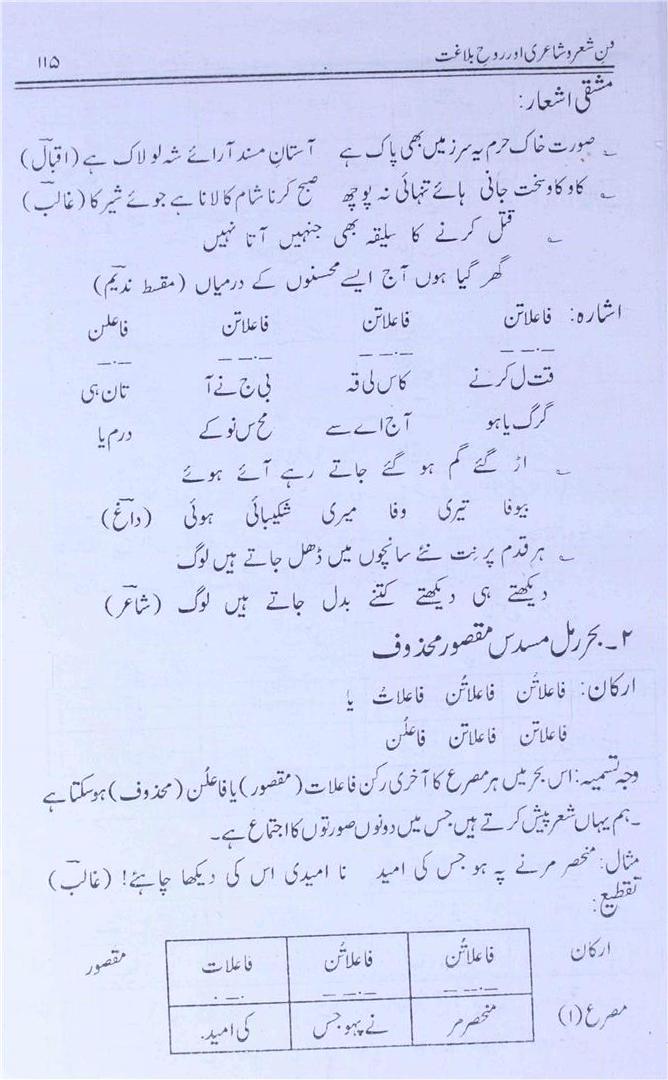 فنِ شعر و شاعری اور روحِ بلاغت ۱۱۵
مشقی اشعار:
صورت خاک حرم یہ سرزمیں بھی پاک ہے آستانِ مسند آرائے شہ لولاک ہے (اقبالؔ)
کاو کاوِ سخت جانی ہائے تنہائی نہ پوچھ صبح کرنا شام کا لانا ہے جوئے شیر کا (غالبؔ)
قتل کرنے کا سلیقہ بھی جنہیں آتا نہیں
گھر گیا ہوں آج ایسے محسنوں کے درمیاں (مقسط ندیمؔ)
اشارہ: فاعلاتن فاعلاتن فاعلاتن فاعلن
–.–– –.–– –.–– –.–
قت ل کرنے کا س لی قہ بی ج نے آ تان ہی
گرگ یا ہو آج اے سے مح س نو کے درم یا
اڑ گئے گم ہو گئے جاتے رہے آئے ہوئے
بیوفا تیری وفا میری شکیبائی ہوئی (داغؔ)
ہر قدم پر نِت نئے سانچوں میں ڈھل جاتے ہیں لوگ
دیکھتے ہی دیکھتے کتنے بدل جاتے ہیں لوگ (شاعرؔ)
۲۔ بحر رمل مسدس مقصور محذوف
ارکان: فاعلاتُن فاعلاتُن فاعلاتُ یا
فاعلاتن فاعلاتن فاعلُن
وجہ تسمیہ: اس بحر میں ہر مصرع کا آخری رکن فاعلات (مقصور) یا فاعلُن (محذوف) ہوسکتا ہے
۔ ہم یہاں شعر پیش کرتے ہیں جس میں دونوں صورتوں کا اجتماع ہے۔
مثال: منحصر مرنے پہ ہو جس کی امید نا امیدی اس کی دیکھا چاہئے! (غالبؔ)
تقطیع:
ارکان فاعلاتُن فاعلاتُن فاعلات مقصور
–.–– –.–– –.–.
مصرع (۱) منحصر مر نے پہو جس کی امید